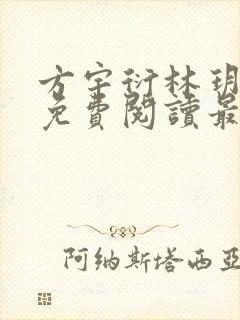 方宇衍林玥
免費閱讀最
阿纳斯塔西亚